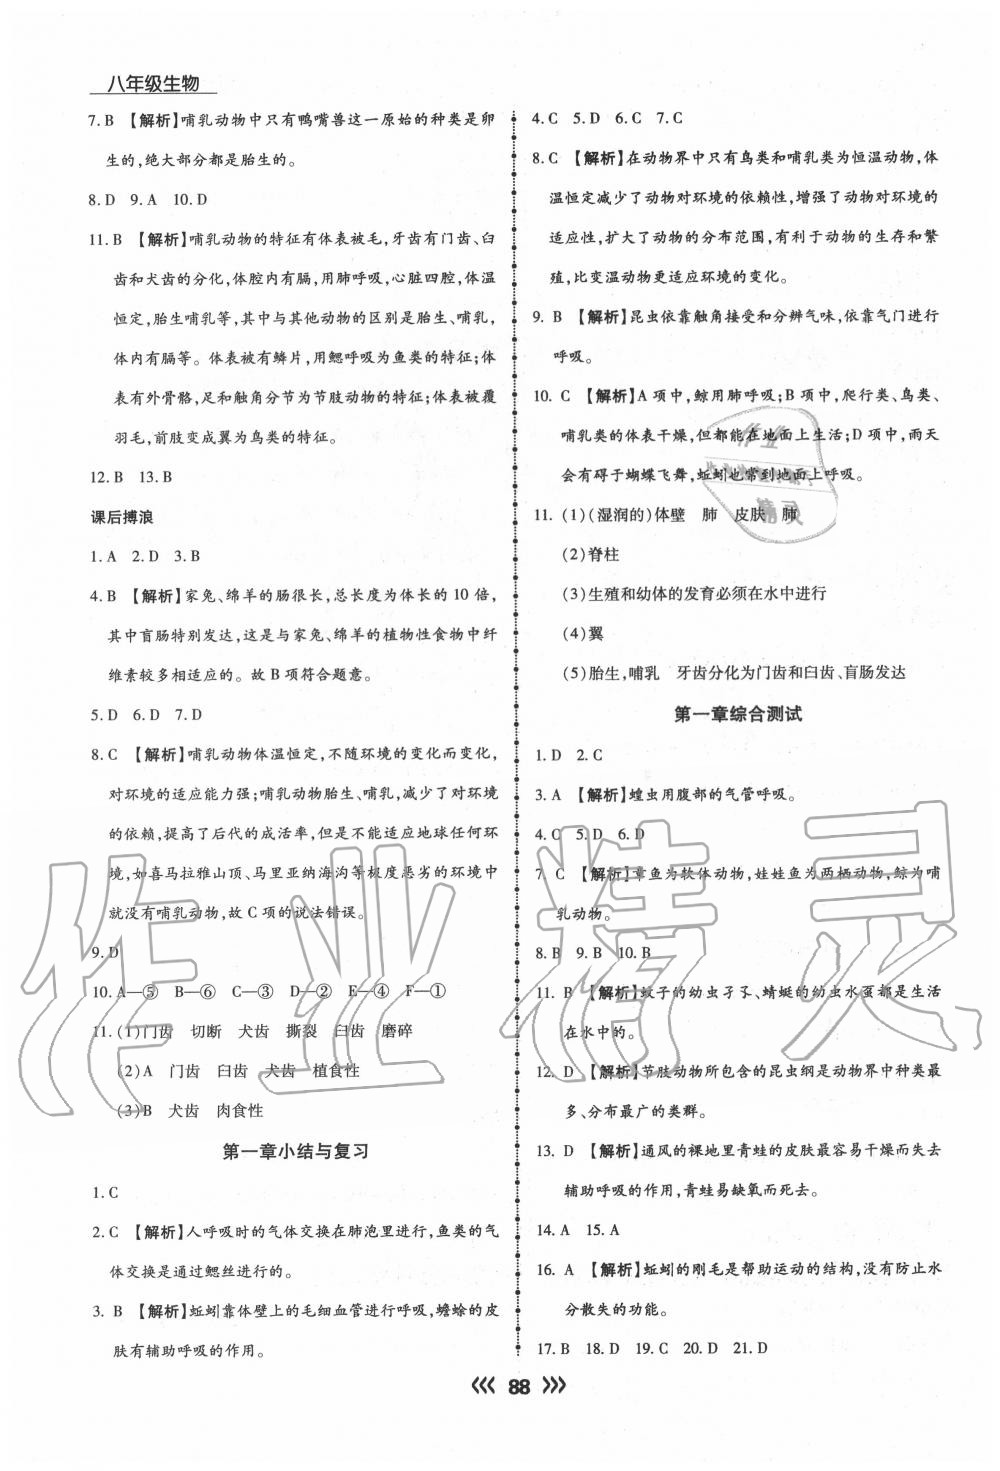 八年级生物
7. B 【解析】哺乳动物中只有鸭嘴兽这一原始的种类是卵
生的,绝大部分都是胎生的。
8. D 9. A 10. D
11. B 【解析】哺乳动物的特征有体表被毛,牙齿有门齿、臼
齿和犬齿的分化,体腔内有膈,用肺呼吸,心脏四腔,体温
恒定,胎生哺乳等,其中与其他动物的区别是胎生、哺乳,
体内有膈等。体表被有鳞片,用鳃呼吸为鱼类的特征;体
表有外骨骼,足和触角分节为节肢动物的特征;体表被覆
羽毛,前肢变成翼为鸟类的特征。
12. B 13. B
课后搏浪
1. A 2. D 3. B
4. B 【解析】家兔、绵羊的肠很长,总长度为体长的 10 倍,
其中盲肠特别发达,这是与家兔、绵羊的植物性食物中纤
维素较多相适应的。故 B 项符合题意。
5. D 6. D 7. D
8. C 【解析】哺乳动物体温恒定,不随环境的变化而变化,
对环境的适应能力强;哺乳动物胎生、哺乳,减少了对环境
的依赖,提高了后代的成活率,但是不能适应地球任何环
境,如喜马拉雅山顶、马里亚纳海沟等极度恶劣的环境中
就没有哺乳动物,故 C 项的说法错误。
9. D
10. A—⑤ B—⑥ C—③ D—② E—④ F—①
11. (1)门齿 切断 犬齿 撕裂 臼齿 磨碎
(2)A 门齿 臼齿 犬齿 植食性
(3)B 犬齿 肉食性
第一章小结与复习
1. C
2. C 【解析】人呼吸时的气体交换在肺泡里进行,鱼类的气
体交换是通过鳃丝进行的。
3. B 【解析】蚯蚓靠体壁上的毛细血管进行呼吸,蟾蜍的皮
肤有辅助呼吸的作用。
4. C 5. D 6. C 7. C
8. C 【解析】在动物界中只有鸟类和哺乳类为恒温动物,体
温恒定减少了动物对环境的依赖性,增强了动物对环境的
适应性,扩大了动物的分布范围,有利于动物的生存和繁
殖,比变温动物更适应环境的变化。
9. B 【解析】昆虫依靠触角接受和分辨气味,依靠气门进行
呼吸。
10. C 【解析】A 项中,鲸用肺呼吸;B 项中,爬行类、鸟类、
哺乳类的体表干燥,但都能在地面上生活;D 项中,雨天
会有碍于蝴蝶飞舞,蚯蚓也常到地面上呼吸。
11. (1)(湿润的)体壁 肺 皮肤 肺
(2)脊柱
(3)生殖和幼体的发育必须在水中进行
(4)翼
(5)胎生,哺乳 牙齿分化为门齿和臼齿、盲肠发达
第一章综合测试
1. D 2. C
3. A 【解析】蝗虫用腹部的气管呼吸。
4. C 5. D 6. D
7. C 【解析】章鱼为软体动物,娃娃鱼为两栖动物,鲸为哺
乳动物。
8. B 9. B 10. B
11. B 【解析】蚊子的幼虫孑孓、蜻蜓的幼虫水虿都是生活
在水中的。
12. D 【解析】节肢动物所包含的昆虫纲是动物界中种类最
多、分布最广的类群。
13. D 【解析】通风的裸地里青蛙的皮肤容易干燥而失去
辅助呼吸的作用,青蛙易缺氧而死去。
14. A 15. A
16. A 【解析】蚯蚓的刚毛是帮助运动的结构,没有防止水
分散失的功能。
17. B 18. D 19. C 20. D 21. D
88
作业精灵
作业
精灵